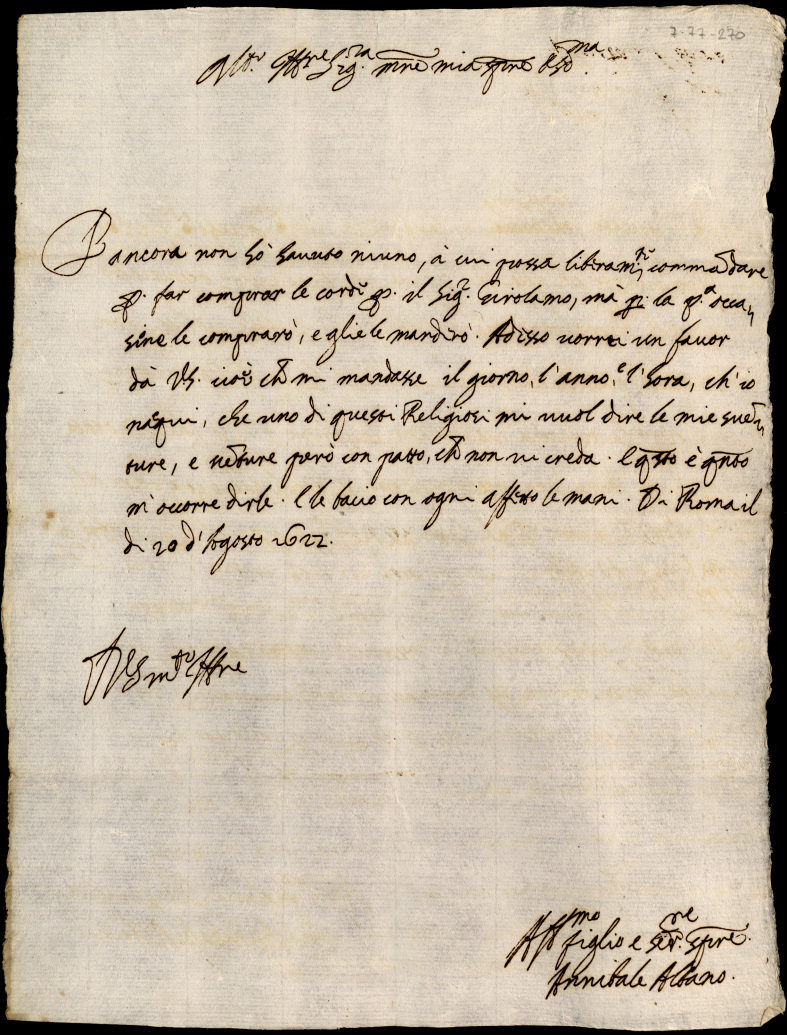 7-77-270
Molto Ill.re Sig.ra m̃re mia sempre oss.ma
Per ancora non hò hauuto niuno, à cui possa liberam.te commãdare
p. far comprar le corde p. il Sig.r Girolamo, mà p. la p.a occa,
sione le comprarò, e glie le manderò. Adesso uorrei un fauor
dà VS. cioè ch̃ mi mandasse il giorno, l'anno, e l'hora, ch'io
nacqui, che uno di questi Religiosi mi uuol dire le mie suẽ,
ture, e uẽture però con patto, ch̃ non ui creda. E q̃sto è q̃nto
m'occorre dirle. E le bacio con ogni affetto le mani. Di Roma il
di 20 d'Agosto 1622.
Di VS m.to Ill.re
Aff.mo figlio e ser.re sempre
Annibale Albano.